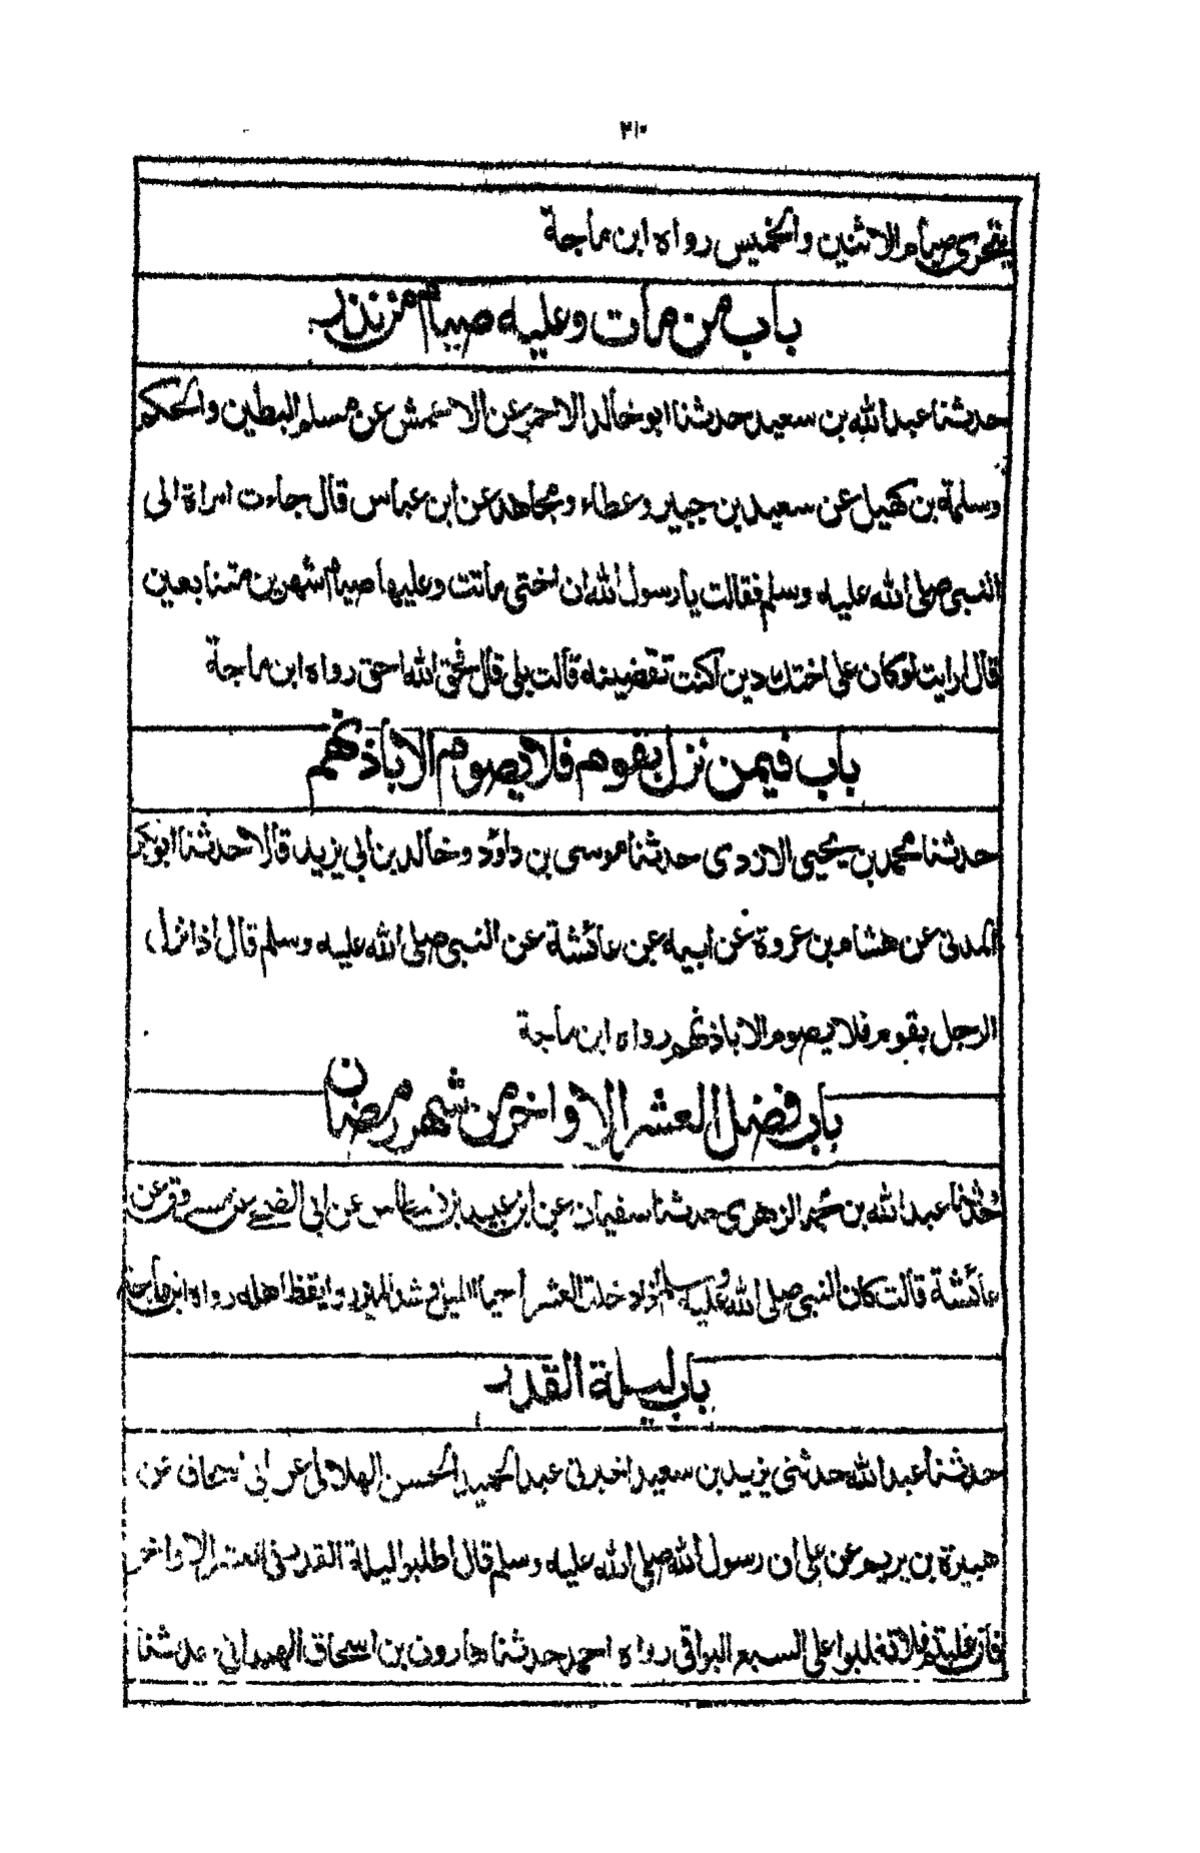 ٢١٠
يتحرى صيام الاثنين والخميس رواه ابن ماجة
باب من مات وعليه صيام من نذر
حدثنا عبد الله بن سعيد حدثنا ابو خالد الاحمر عن الاعمش عن مسلم البطين والحكم
وسلمة بن كهيل عن سعيد بن جبير وعطاء ومجاهد عن ابن عباس قال جاءت امراة الى
النبي صلى الله عليه وسلم فقالت يا رسول الله ان اختي ماتت وعليها صيام شهرين متتابعين
قال ارايت لو كان على اختك دين اكنت تقضينه قالت بلى قال فحق الله احق رواه ابن ماجة
باب فيمن نزل بقوم فلا يصوم الا باذنهم
حدثنا محمد بن يحيى الازدى حدثنا موسى بن داؤد وخالد بن ابي يزيد قالا حدثنا ابو بكر
المدنى عن هشام بن عروة عن ابيه عن عائشة عن النبي صلى الله عليه وسلم قال اذا نزل
الرجل بقوم فلا يصوم الا باذنهم رواه ابن ماجة
باب فضل العشر الاواخر من شهر رمضان
حدثنا عبد الله بن محمد الزهرى حدثنا سفيان عن ابن عبيد بن نسطاس عن ابي الضحى عن مسروق عن
عائشة قالت كان النبي صلى الله عليه وسلم اذا دخلت العشر احيا الليل وشد الميزر وايقظ اهله رواه ابن ماجة
باب ليلة القدر
حدثنا عبد الله حدثني يزيد بن سعيد اخبرني عبد الحميد الحسن الهلالى عن ابي اسحاق عن
هبيرة بن بريم عن على ان رسول الله صلى الله عليه وسلم قال اطلبوا ليلة القدر في العشر الاواخر
فان غلبتم فلا تغلبوا على السبع البواقي رواه احمد حدثنا هارون بن اسحاق الهمداني حدثنا